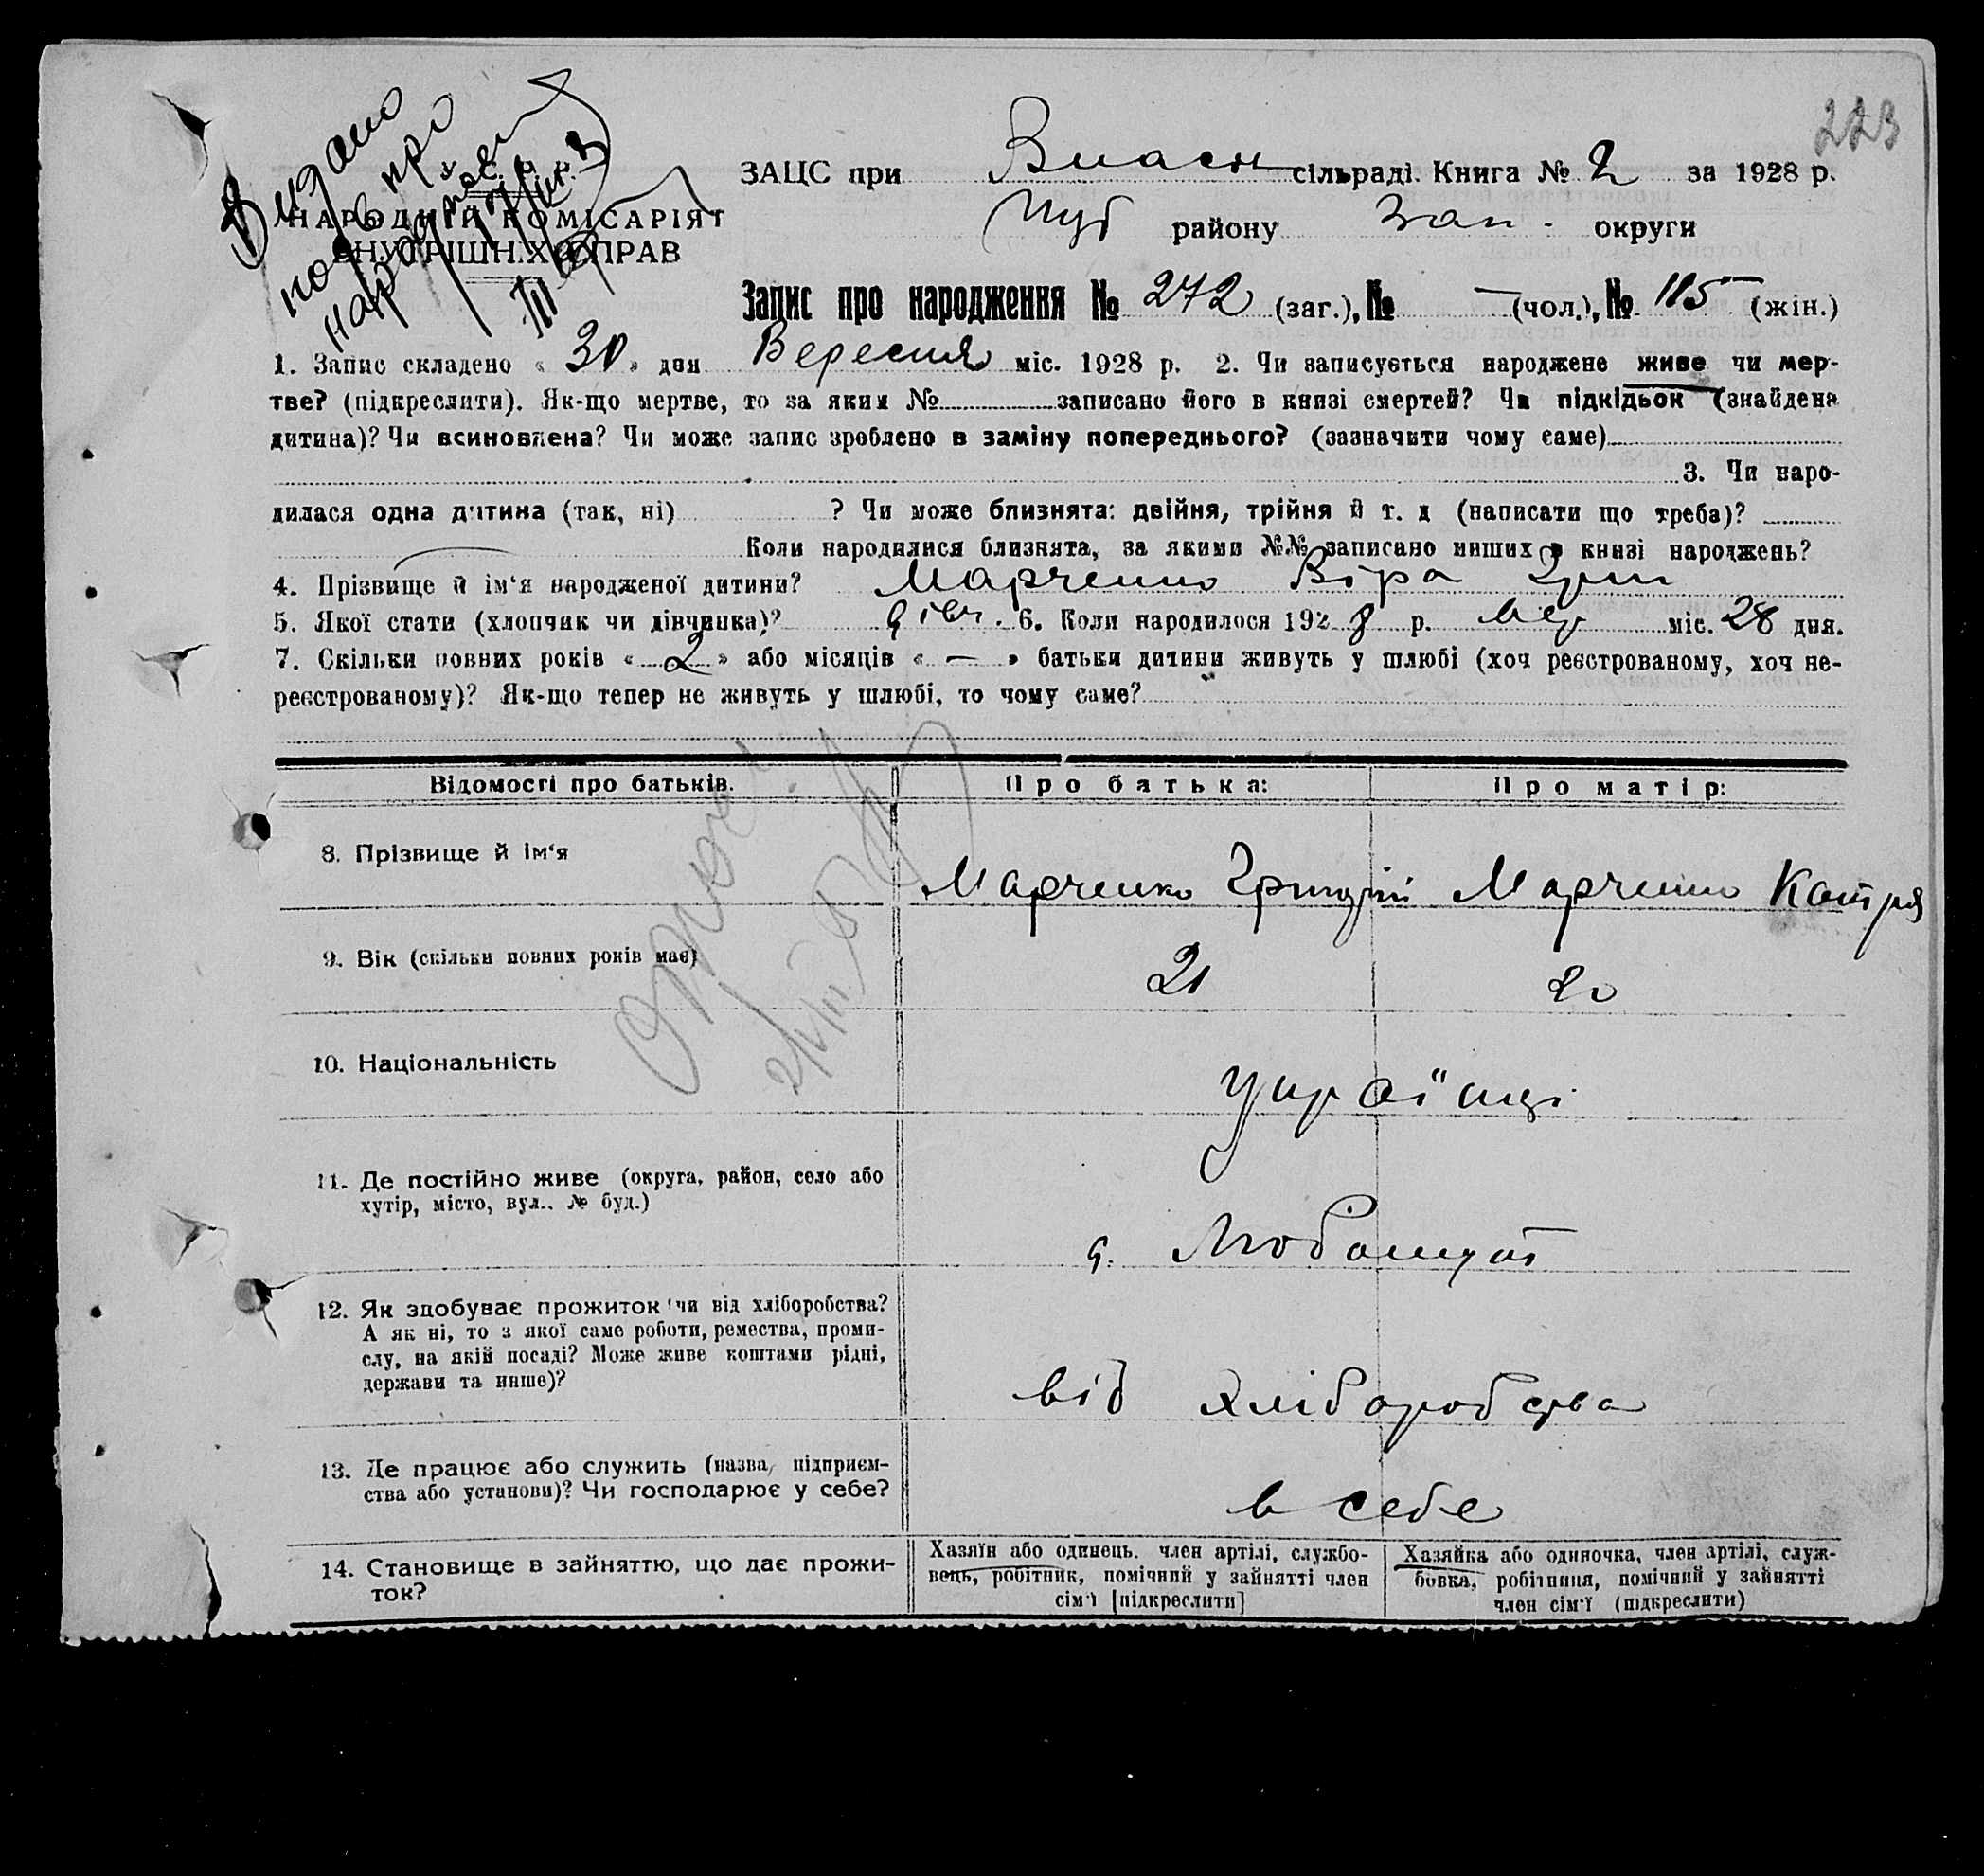 223
Видано
про
ЗАЦС при Власн сільраді. Книга № 2 за 1928 р.
НАРОДНІЙ КОМІСАРІЯТ
ВНУТРІШНІХ СПРАВ
району Зап. округи
Запис про народження № 272 (заг.), № — (чол.), № 115 (жін.)
1. Запис складено « 30 » дня Вересня міс. 1928 р. 2. Чи записується народжене живе чи мер-
тве? (підкреслити). Як-що мертве, то за яким № записано його в книзі смертей? Чи підкідьок (знайдена
дитина)? Чи всиновлена? Чи може запис зроблено в заміну попереднього? (зазначити чому саме)
3. Чи наро-
дилася одна дитина (так, ні) ? Чи може близнята: двійня, трійня й т. д (написати що треба)?
Коли народилися близнята, за якими №№ записано инших в книзі народжень?
4. Прізвище й ім‘я народженої дитини? Марченко Віра Гри
5. Якої стати (хлопчик чи дівчинка)? дівч. 6. Коли народилося 1928 р. вер міс. 28 дня.
7. Скільки повних років « 2 » або місяців « — » батьки дитини живуть у шлюбі (хоч реєстрованому, хоч не-
реєстрованому)? Як-що тепер не живуть у шлюбі, то чому саме?
Відомості про батьків. Про батька: Про матір:
8. Прізвище й ім‘я Марченко Григорій Марченко Катря
9. Вік (скільки повних років має) 21 20
10. Національність українці
11. Де постійно живе (округа, район, село або
хутір, місто, вул.. № буд.)
12. Як здобуває прожиток (чи від хліборобства?
А як ні, то з якої саме роботи, ремества, проми-
слу, на якій посаді? Може живе коштами рідні,
держави та инше)?
від хліборобства
13. Де працює або служить (назва, підприєм-
ства або установи)? Чи господарює у себе?
в себе
14. Становище в зайняттю, що дає прожи-
ток?
Хазяїн або одинець. член артілі, службо-
вець, робітник, помічний у зайнятті член
сім‘ї [підкреслити]
Хазяйка або одиночка, член артілі, служ-
бовка, робітниця, помічний у зайнятті
член сім‘ї (підкреслити)